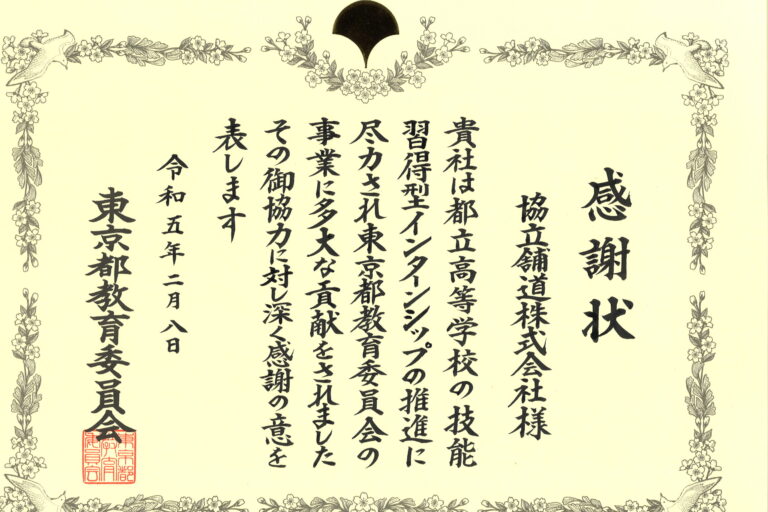 感謝状
協立舗道株式会社様
貴社は都立高等学校の技能
習得型インターンシップの推進に
尽力され東京都教育委員会の
事業に多大な貢献をされました
その御協力に対し深く感謝の意を
表します
令和五年二月八日
東京都教育委員会